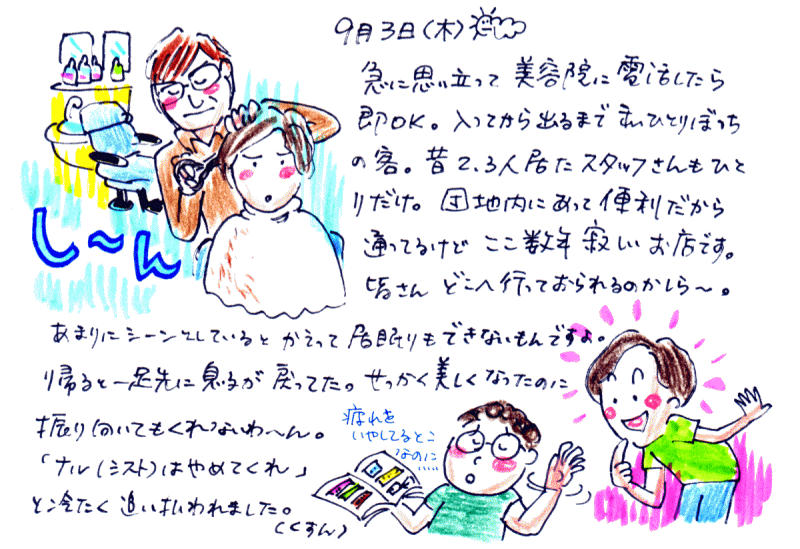 9月3日(木)
急に思い立って 美容院に電話したら
即OK。入ってから出るまで 私ひとりぼっち
の客。昔2、3人居たスタッフさんもひと
りだけ。団地内にあって便利だから
通ってるけど ここ数年 寂しいお店です。
皆さん どこへ行っておられるのかしら〜。
し〜ん
あまりにシーンとしていると かえって居眠りもできないもんですよ。
帰ると一足先に息子が戻ってた。せっかく美しくなったのに
振り向いてもくれないわ〜ん。
「ナル(シスト)はやめてくれ」
と冷たく追い払われました。
(くすん)
疲れを
いやしてるとこ
なのに....